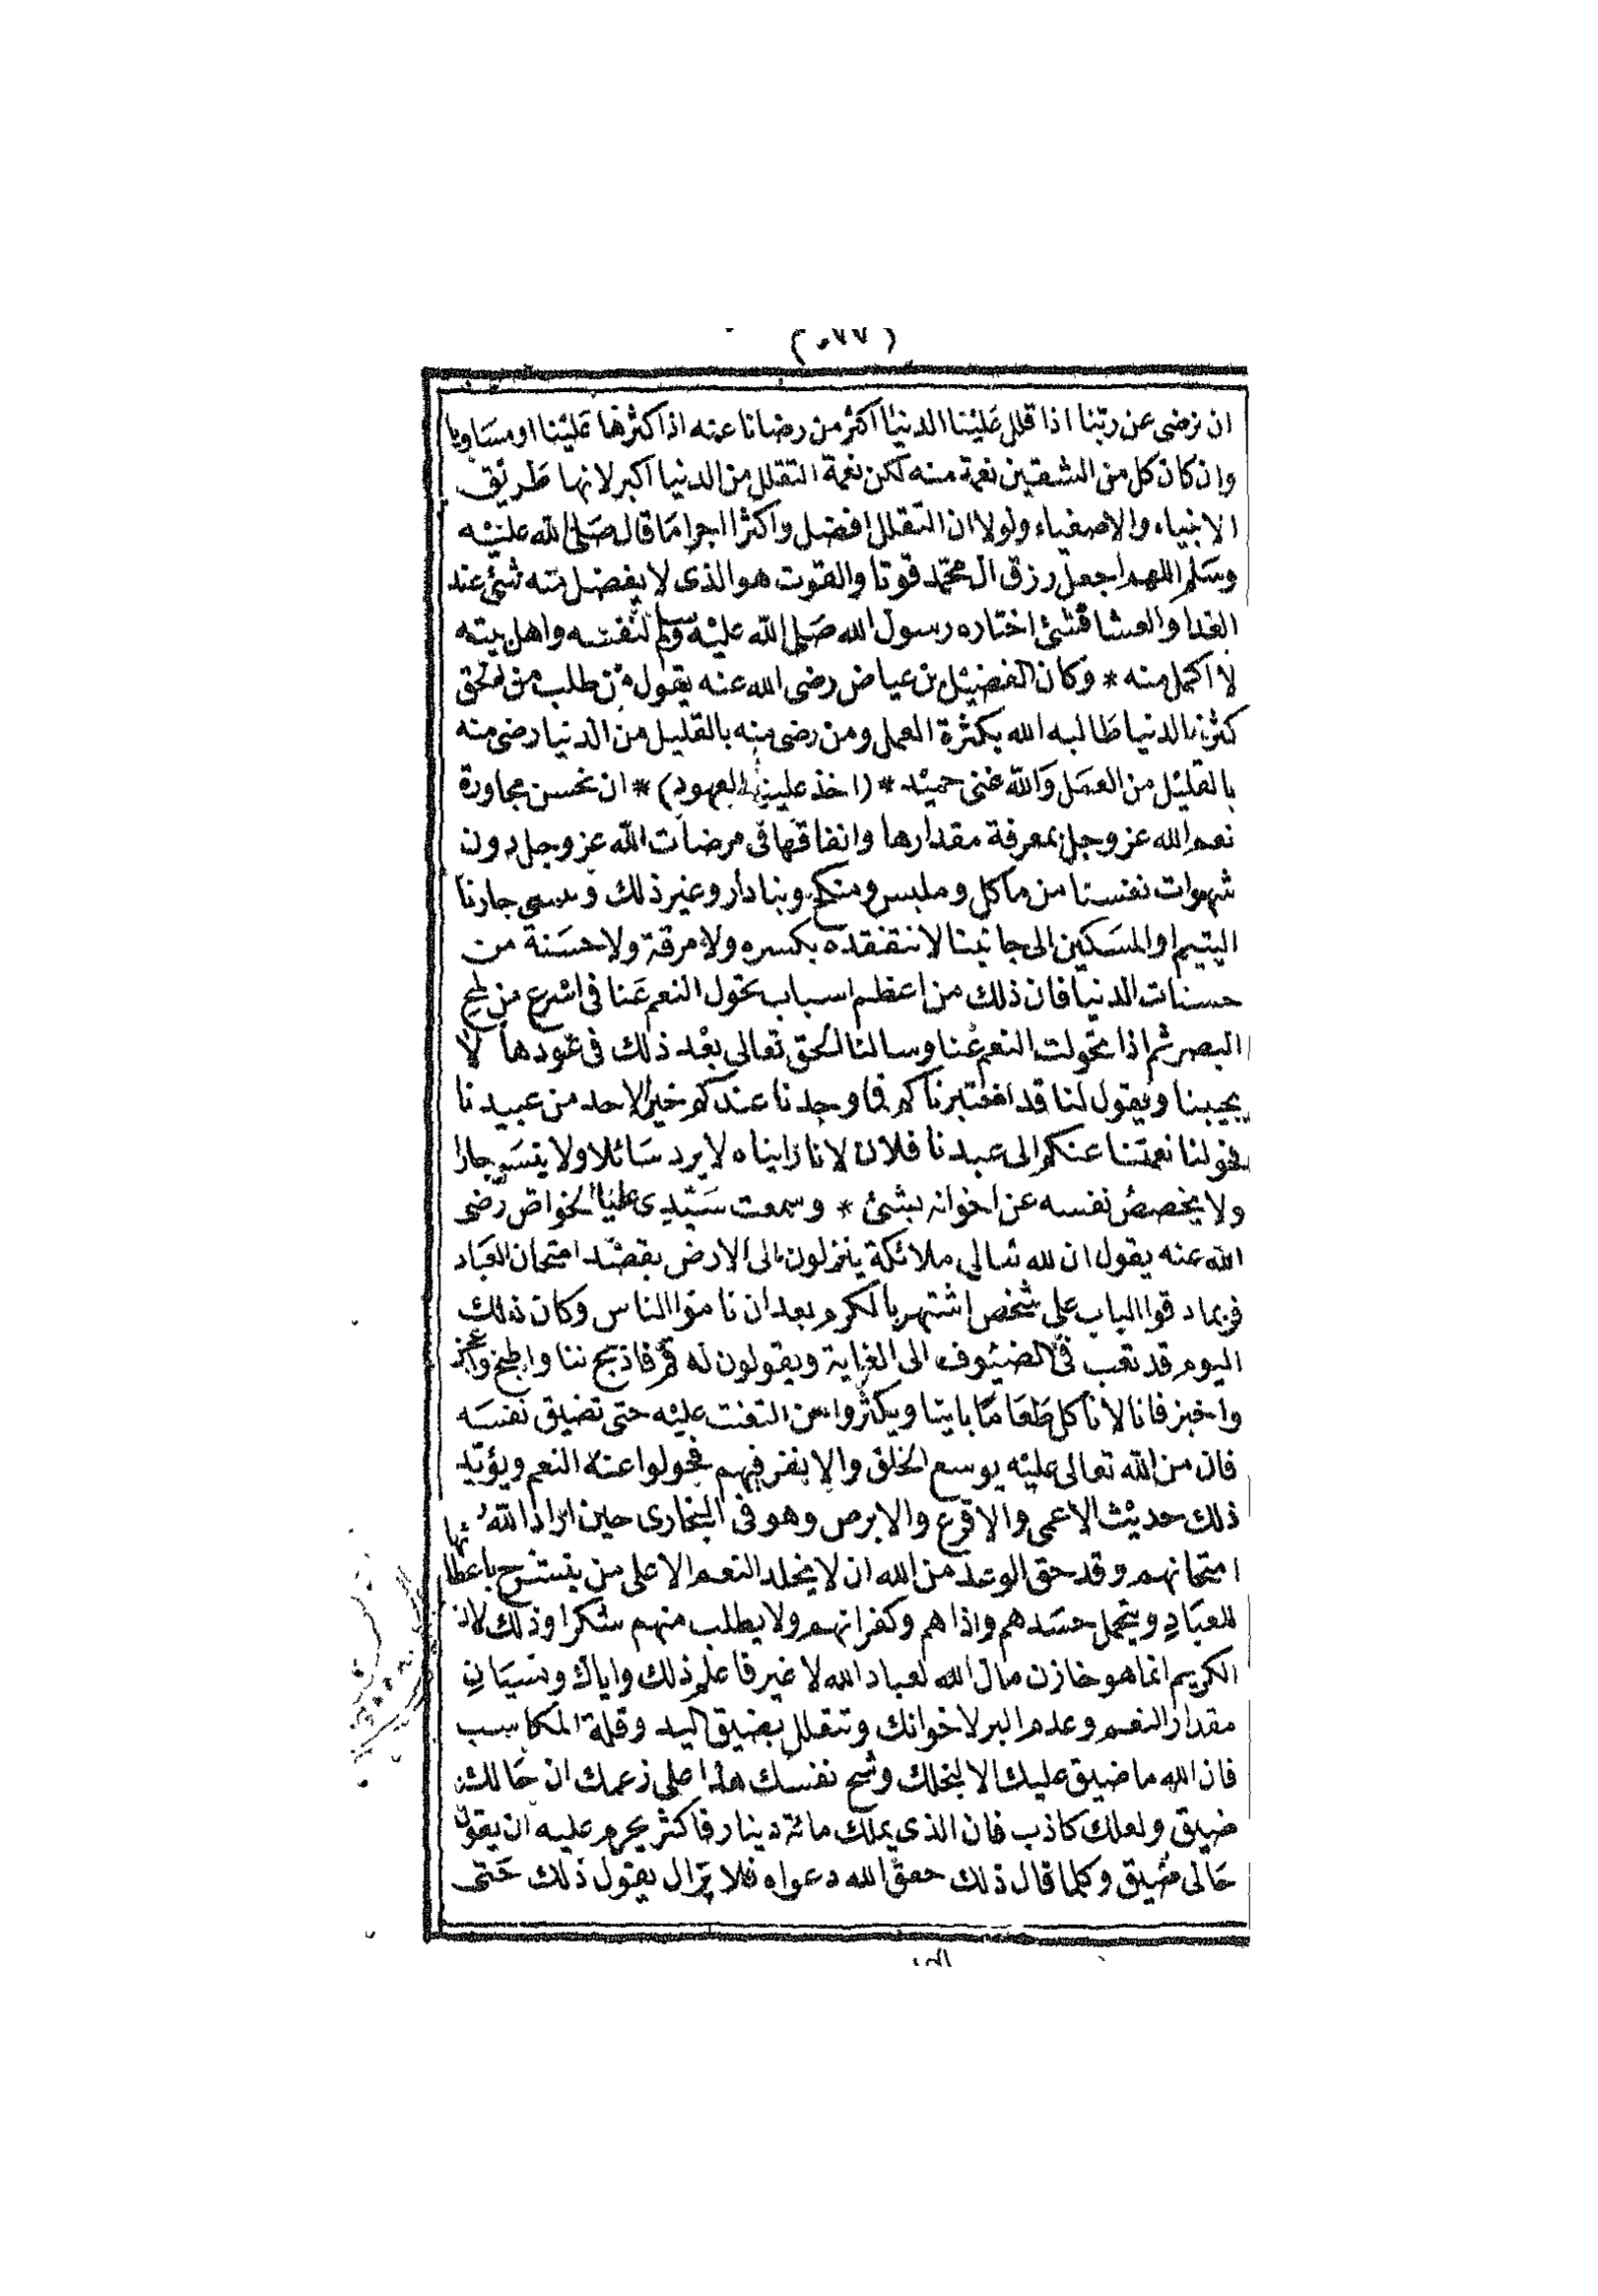 (٠٧٧)
ان نرضى عن ربنا اذا قلل علينا الدنيا اكثر من رضانا عنه اذا كثرها علينا او مساويا
وان كان كل من الشقين نعمة منه لكن نعمة التقلل من الدنيا اكبر لانها طريق
الانبياء والاصفياء ولولا ان التقلل افضل واكثر اجرا ما قال صلى الله عليه
وسلم اللهم اجعل رزق ال محمد قوتا والقوت هو الذى لا يفضل منه شئ عند
الغدا والعشا فشئ اختاره رسول الله صلى الله عليه وسلم لنفسه واهل بيته
لا اكمل منه * وكان الفضيل بن عياض رضى الله عنه يقول من طلب من الحق
كثرة الدنيا طالبه الله بكثرة العمل ومن رضى منه بالقليل من الدنيا رضى منه
بالقليل من العمل والله غنى حميد * (اخذ علينا العهود) * ان نحسن مجاورة
نعم الله عز وجل بمعرفة مقدارها وانفاقها فى مرضات الله عز وجل دون
شهوات نفسنا من ماكل وملبس ومنكح وبنا دار وغير ذلك و جارنا
اليتيم او المسكين الى جانبنا لا نتفقده بكسره ولا مرقة ولا حسنة من
حسنات الدنيا فان ذلك من اعظم اسباب تحول النعم عنا فى اسرع من لمح
البصر ثم اذا تحولت النعم عنا وسالنا الحق تعالى بعد ذلك فى عودها لا
يجيبنا ويقول لنا قد اختبرناكم فما وجدنا عندكم خيرا لاحد من عبيدنا
فحولنا نعمتنا عنكم الى عبدنا فلان لانا رايناه لا يرد سائلا ولا ينسى جارا
ولا يخصص نفسه عن اخوانه بشئ * وسمعت سيدى عليا الخواص رضى
الله عنه يقول ان لله تعالى ملائكة ينزلون الى الارض بقصد امتحان العباد
فربما دقوا الباب على شخص اشتهر بالكرم بعد ان ناموا الناس وكان ذلك
اليوم قد تعب فى الضيوف الى الغاية ويقولون له قم فاذبح لنا واطبخ واعجن
واخبز فانا لا ناكل طعاما بايتا ويكثروا من التعنت عليه حتى تضيق نفسه
فان من الله تعالى عليه يوسع الخلق والا نفر فيهم فحولوا عنه النعم ويؤيد
ذلك حديث الاعمى والاقرع والابرص وهو فى البخارى حين اراد الله
امتحانهم وقد حق الوعد من الله ان لا يخلد النعم الا على من ينشرح باعطائها
للعباد ويتحمل حسدهم واذاهم وكفرانهم ولا يطلب منهم شكرا وذلك لان
الكريم انما هو خازن مال الله لعباد الله لا غير فاعلم ذلك واياك ونسيان
مقدار النعم وعدم البر لاخوانك وتتعلل بضيق اليد وقلة المكاسب
فان الله ما ضيق عليك الا لبخلك وشح نفسك هذا على زعمك ان حالك
ضيق ولعلك كاذب فان الذى يملك مائة دينار فاكثر يحرم عليه ان يقول
حالى ضيق وكلما قال ذلك حقق الله دعواه فلا يزال يقول ذلك حتى